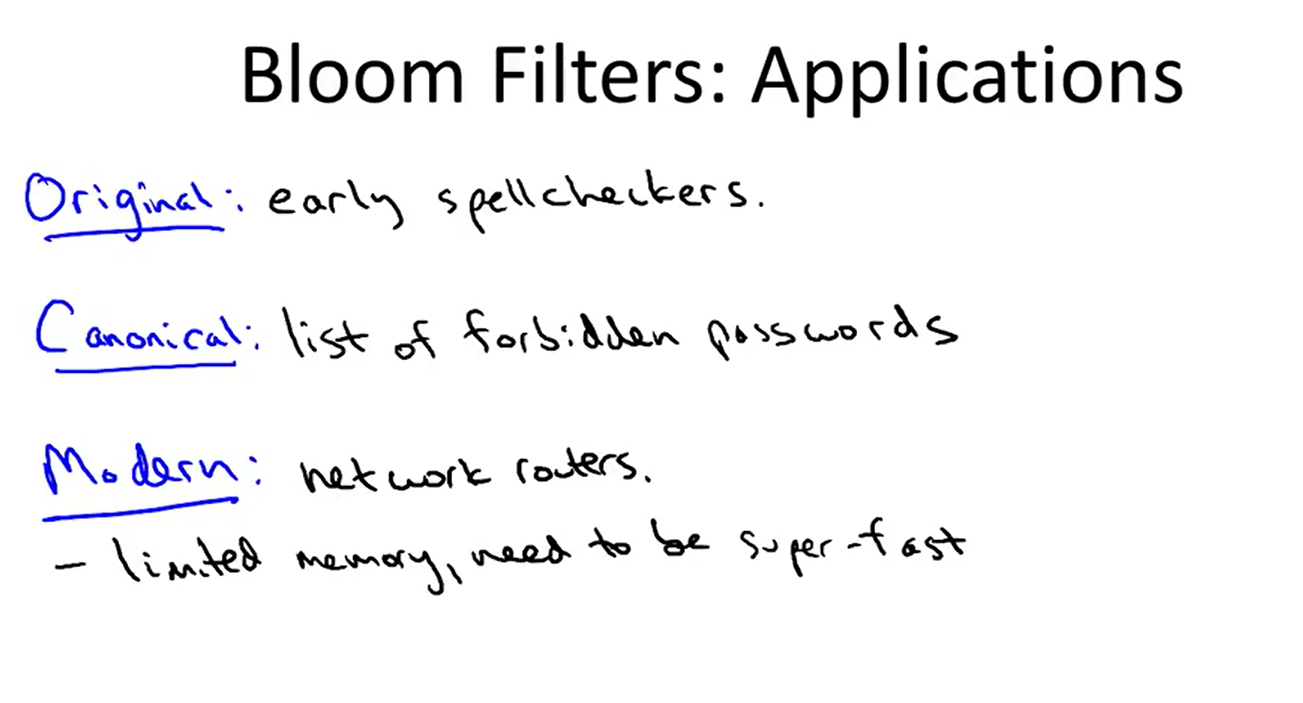 Bloom Filters: Applications
Original: early spellcheckers.
Canonical: list of forbidden passwords
Modern: network routers.
- limited memory, need to be super-fast